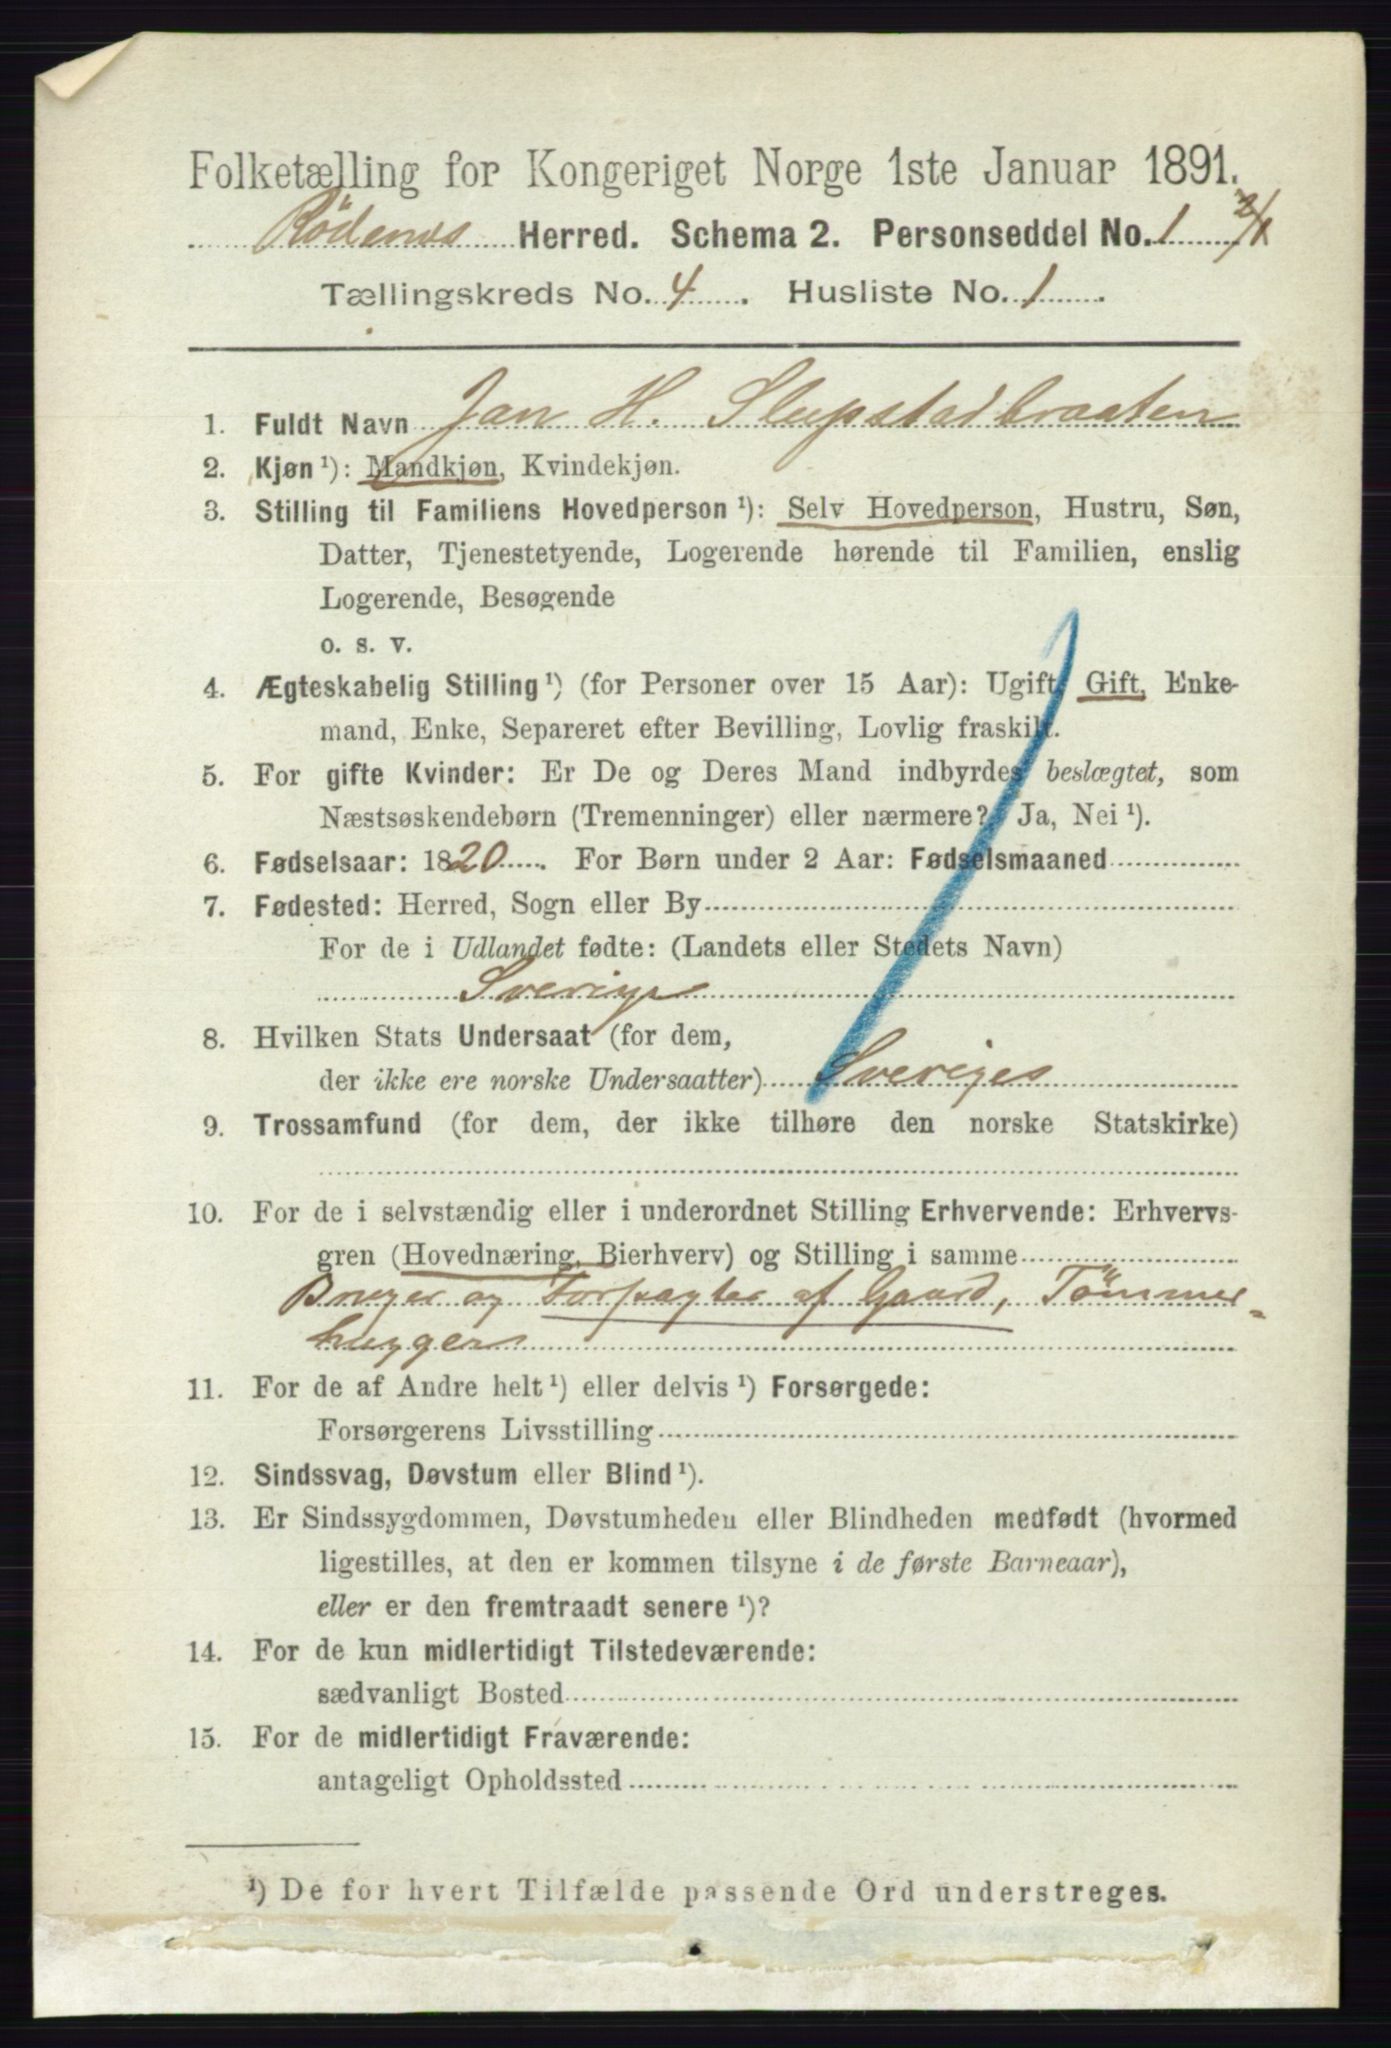 Folketælling for Kongeriget Norge 1ste Januar 1891.
Rödenes Herred. Schema 2. Personseddel No. 1 2/1
Tællingskreds No. 4. Husliste No. 1.
1. Fuldt Navn Jan H. Slupstadbraaten
2. Kjøn ¹): Mandkjøn, Kvindekjøn.
3. Stilling til Familiens Hovedperson ¹): Selv Hovedperson, Hustru, Søn,
Datter, Tjenestetyende, Logerende hørende til Familien, enslig
Logerende, Besøgende
o. s. v.
4. Ægteskabelig Stilling ¹) (for Personer over 15 Aar): Ugift, Gift, Enke-
mand, Enke, Separeret efter Bevilling, Lovlig fraskilt.
5. For gifte Kvinder: Er De og Deres Mand indbyrdes beslægtet, som
Næstsøskendebørn (Tremenninger) eller nærmere? Ja, Nei ¹).
6. Fødselsaar: 1820. For Børn under 2 Aar: Fødselsmaaned
7. Fødested: Herred, Sogn eller By
For de i Udlandet fødte: (Landets eller Stedets Navn)
Sverige
8. Hvilken Stats Undersaat (for dem,
der ikke ere norske Undersaatter) Sveriges
9. Trossamfund (for dem, der ikke tilhøre den norske Statskirke)
10. For de i selvstændig eller i underordnet Stilling Erhvervende: Erhvervs-
gren (Hovednæring, Bierhverv) og Stilling i samme
Bruger og Forpagter af Gaard, Tömmer-
hugger
11. For de af Andre helt ¹) eller delvis ¹) Forsørgede:
Forsørgerens Livsstilling
12. Sindssvag, Døvstum eller Blind ¹).
13. Er Sindssygdommen, Døvstumheden eller Blindheden medfødt (hvormed
ligestilles, at den er kommen tilsyne i de første Barneaar),
eller er den fremtraadt senere ¹)?
14. For de kun midlertidigt Tilstedeværende:
sædvanligt Bosted
15. For de midlertidigt Fraværende:
antageligt Opholdssted
¹) De for hvert Tilfælde passende Ord understreges.